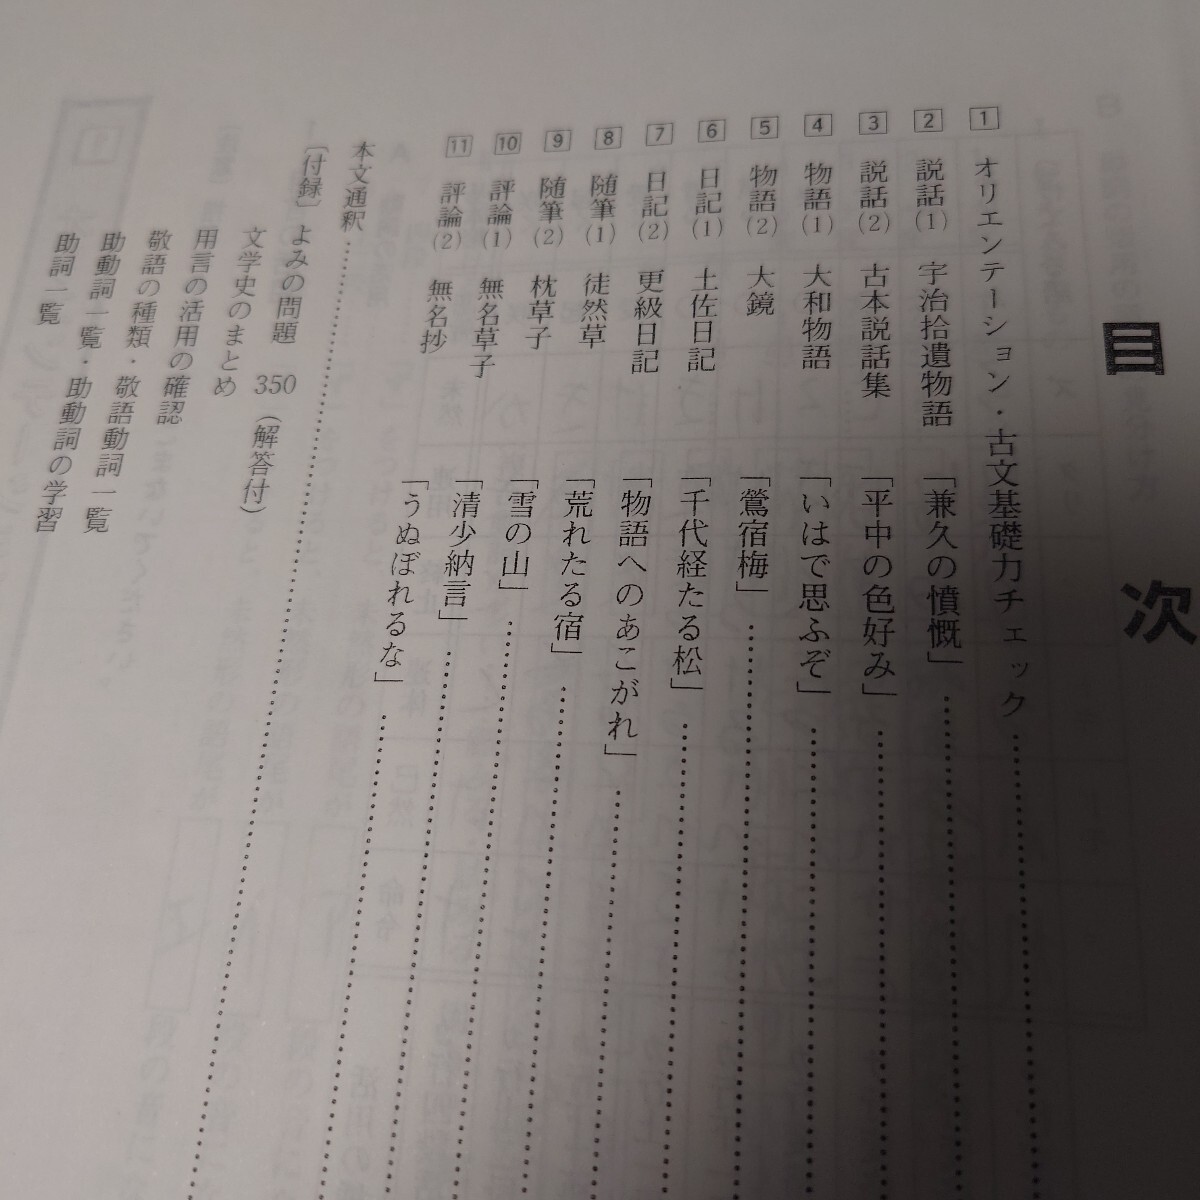 目次
1 オリエンテーション・古文基礎力チェック
2 説話(1) 宇治拾遺物語 「兼久の憤慨」
3 説話(2) 古本説話集 「平中の色好み」
4 物語(1) 大和物語 「いはで思ふぞ」
5 物語(2) 大鏡 「鶯宿梅」
6 日記(1) 土佐日記 「千代経たる松」
7 日記(2) 更級日記 「物語へのあこがれ」
8 随筆(1) 徒然草 「荒れたる宿」
9 随筆(2) 枕草子 「雪の山」
10 評論(1) 無名草子 「清少納言」
11 評論(2) 無名抄 「うぬぼれるな」
本文通釈
〔付録〕よみの問題 350(解答付)
文学史のまとめ
用言の活用の確認
敬語の種類・敬語動詞一覧
助動詞一覧・助動詞の学習
助詞一覧